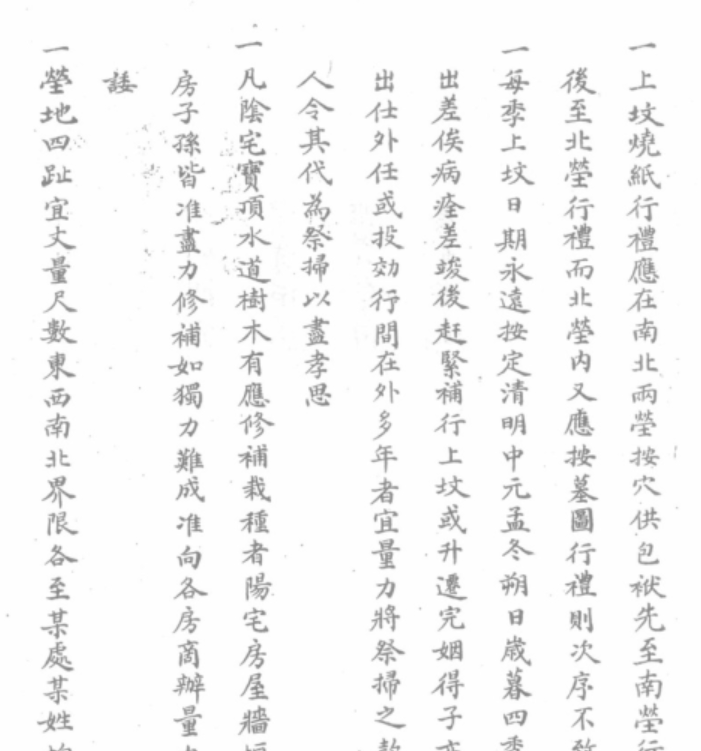 一上坟燒紙行禮應在南北兩塋按穴供包袱先至南塋行
後至北塋行禮而北塋内又應按墓圖行禮則次序不致
一每季上坟日期永遠按定清明中元孟冬朔日歲暮四季
出差俟病痊差竣後赶緊補行上坟或升遷完姻得子亦
出仕外任或投効行間在外多年者宜量力將祭掃之款
人令其代為祭掃以盡孝思
一凡陰宅寶頂水道樹木有應修補栽種者陽宅房屋牆垣
房子孫皆准盡力修補如獨力難成准向各房商辦量力
諉
一塋地四趾宜丈量尺數東西南北界限各至某處某姓